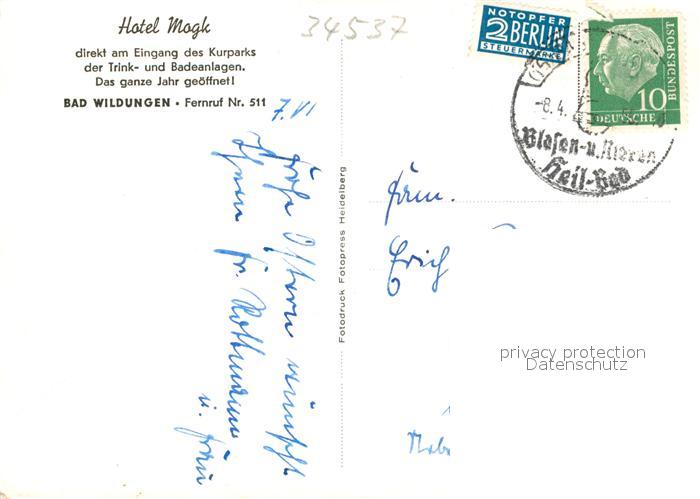 Hotel Mogk
direkt am Eingang des Kurparks
der Trink- und Badeanlagen.
Das ganze Jahr geöffnet!
BAD WILDUNGEN • Fernruf Nr. 511
34537
NOTOPFER
2 BERLIN
STEUERMARKE
10
DEUTSCHE
BUNDESPOST
-8.4.
Blasen-u.Nieren
Heil-Bad
Frohe Ostern wünscht
Ihnen Fr. Rothmann
u. Frau
Fotodruck Fotopress Heidelberg
Fam.
Erich
privacy protection
Datenschutz